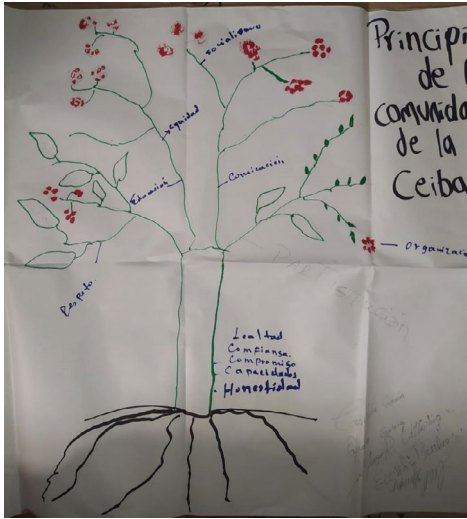 Principi
de l
comunida
de la
Ceiba
socialismo
equidad
Educación
Comicación
organizaci
Respeto.
Lealtad
Compiansa.
Compromiso
Capacidades
Honestidad